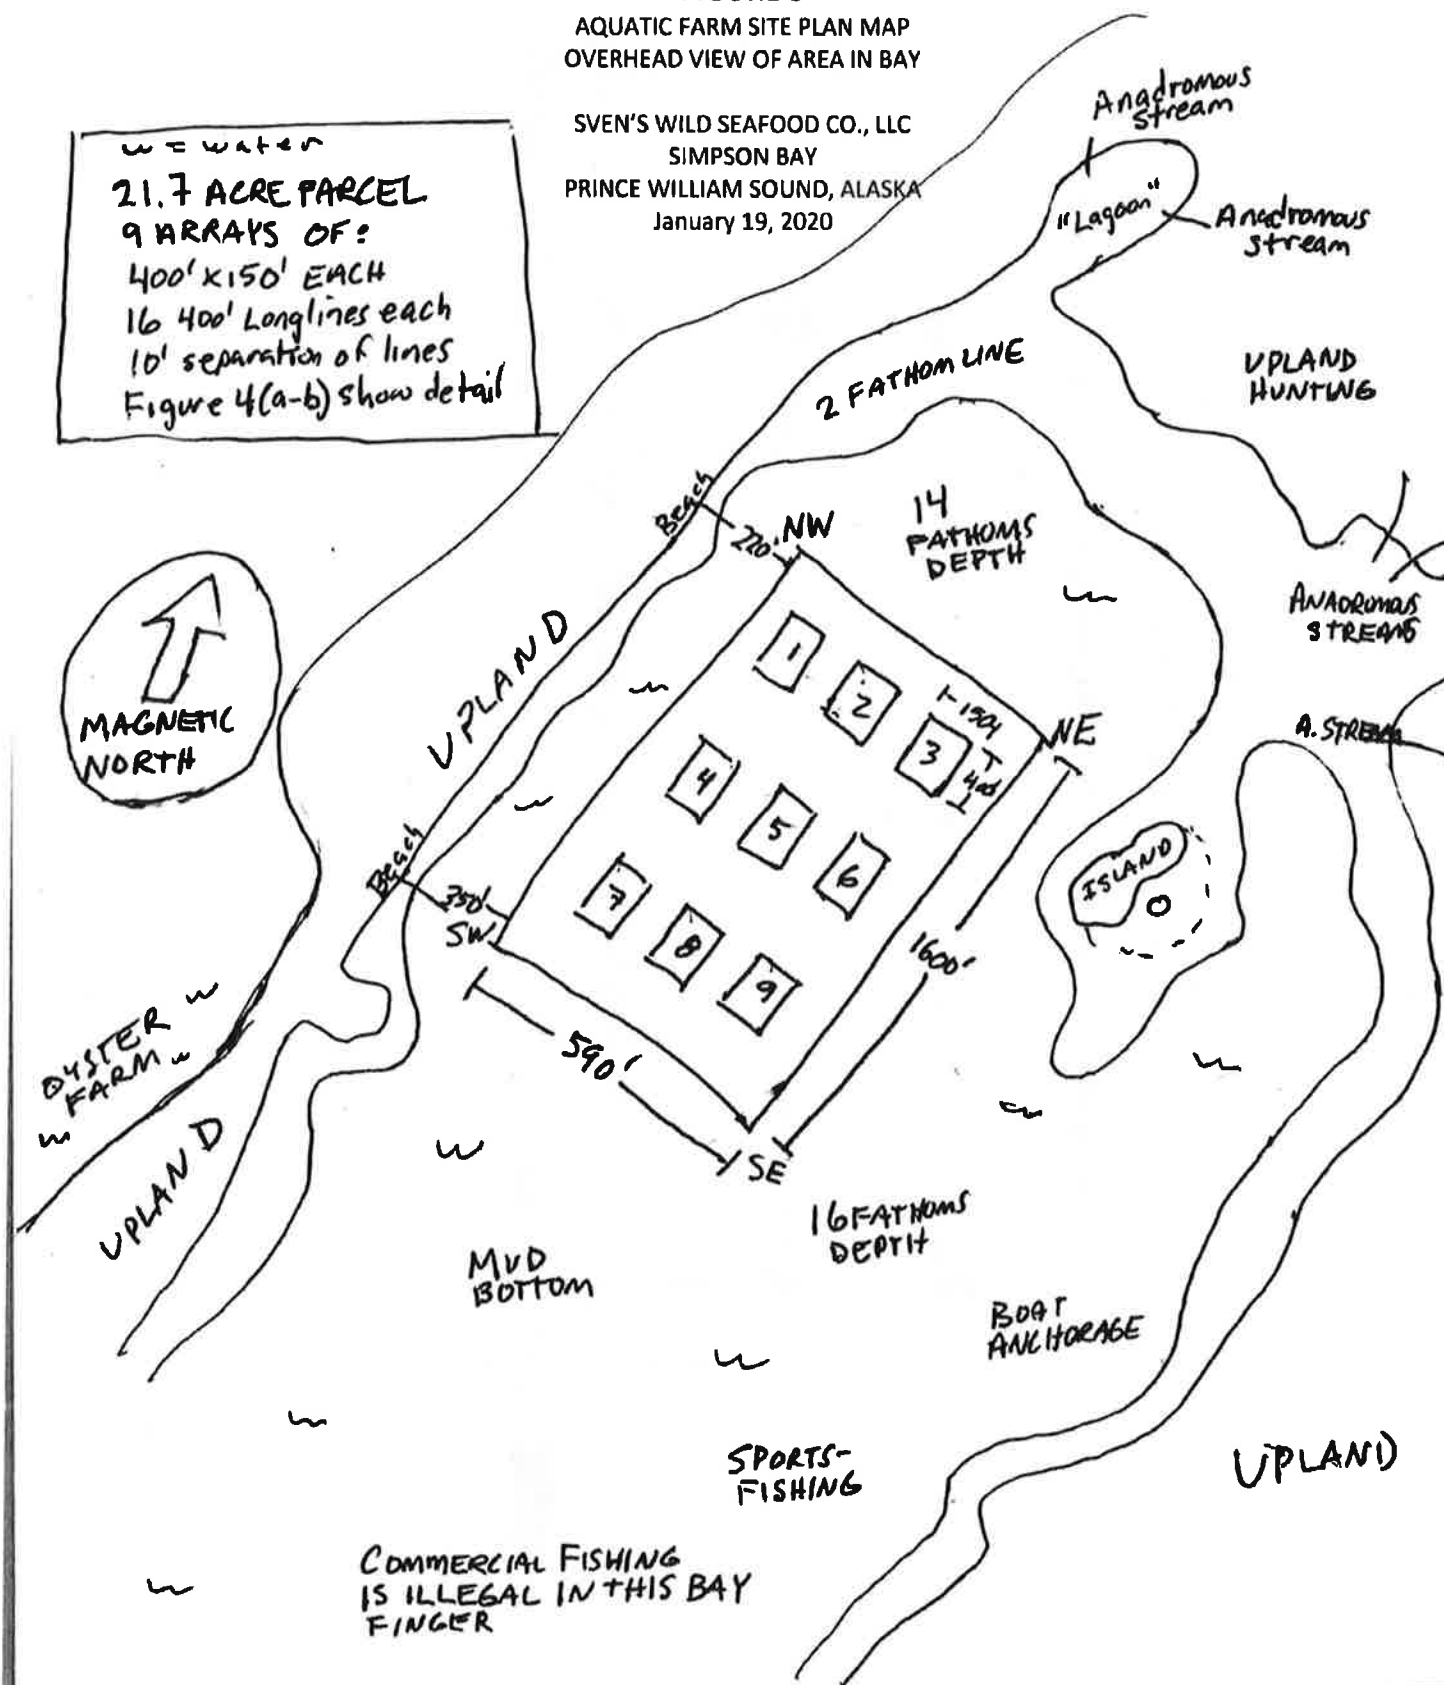 AQUATIC FARM SITE PLAN MAP
OVERHEAD VIEW OF AREA IN BAY
SVEN'S WILD SEAFOOD CO., LLC
SIMPSON BAY
PRINCE WILLIAM SOUND, ALASKA
January 19, 2020
w = water
21.7 ACRE PARCEL
9 ARRAYS OF:
400' X 150' EACH
16 400' Longlines each
10' separation of lines
Figure 4(a-b) show detail
Anadromous
stream
"Lagoon"
Anadromous
stream
2 FATHOM LINE
UPLAND
HUNTING
Beach
220'
NW
14
FATHOMS
DEPTH
w
ANADROMOUS
STREAMS
MAGNETIC
NORTH
UPLAND
w
1
2
3
150'
400'
NE
A. STREAM
4
5
6
w
ISLAND
Beach
350'
SW
7
8
9
1600'
590'
SE
OYSTER w
FARM w
w
UPLAND
w
w
w
16 FATHOMS
DEPTH
MUD
BOTTOM
BOAT
ANCHORAGE
w
w
SPORTS-
FISHING
UPLAND
COMMERCIAL FISHING
IS ILLEGAL IN THIS BAY
FINGER
w